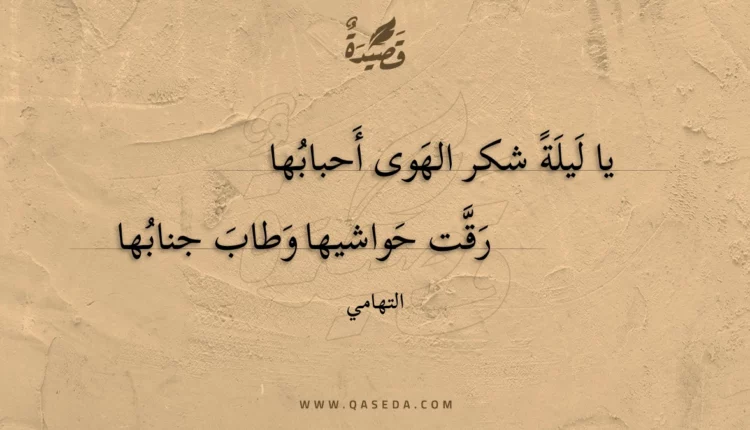 قَصِيدَةٌ
يا لَيلَةً شكر الهَوى أَحبابُها
رَقَّت حَواشيها وَطابَ جنابُها
التهامي
WWW.QASEDA.COM